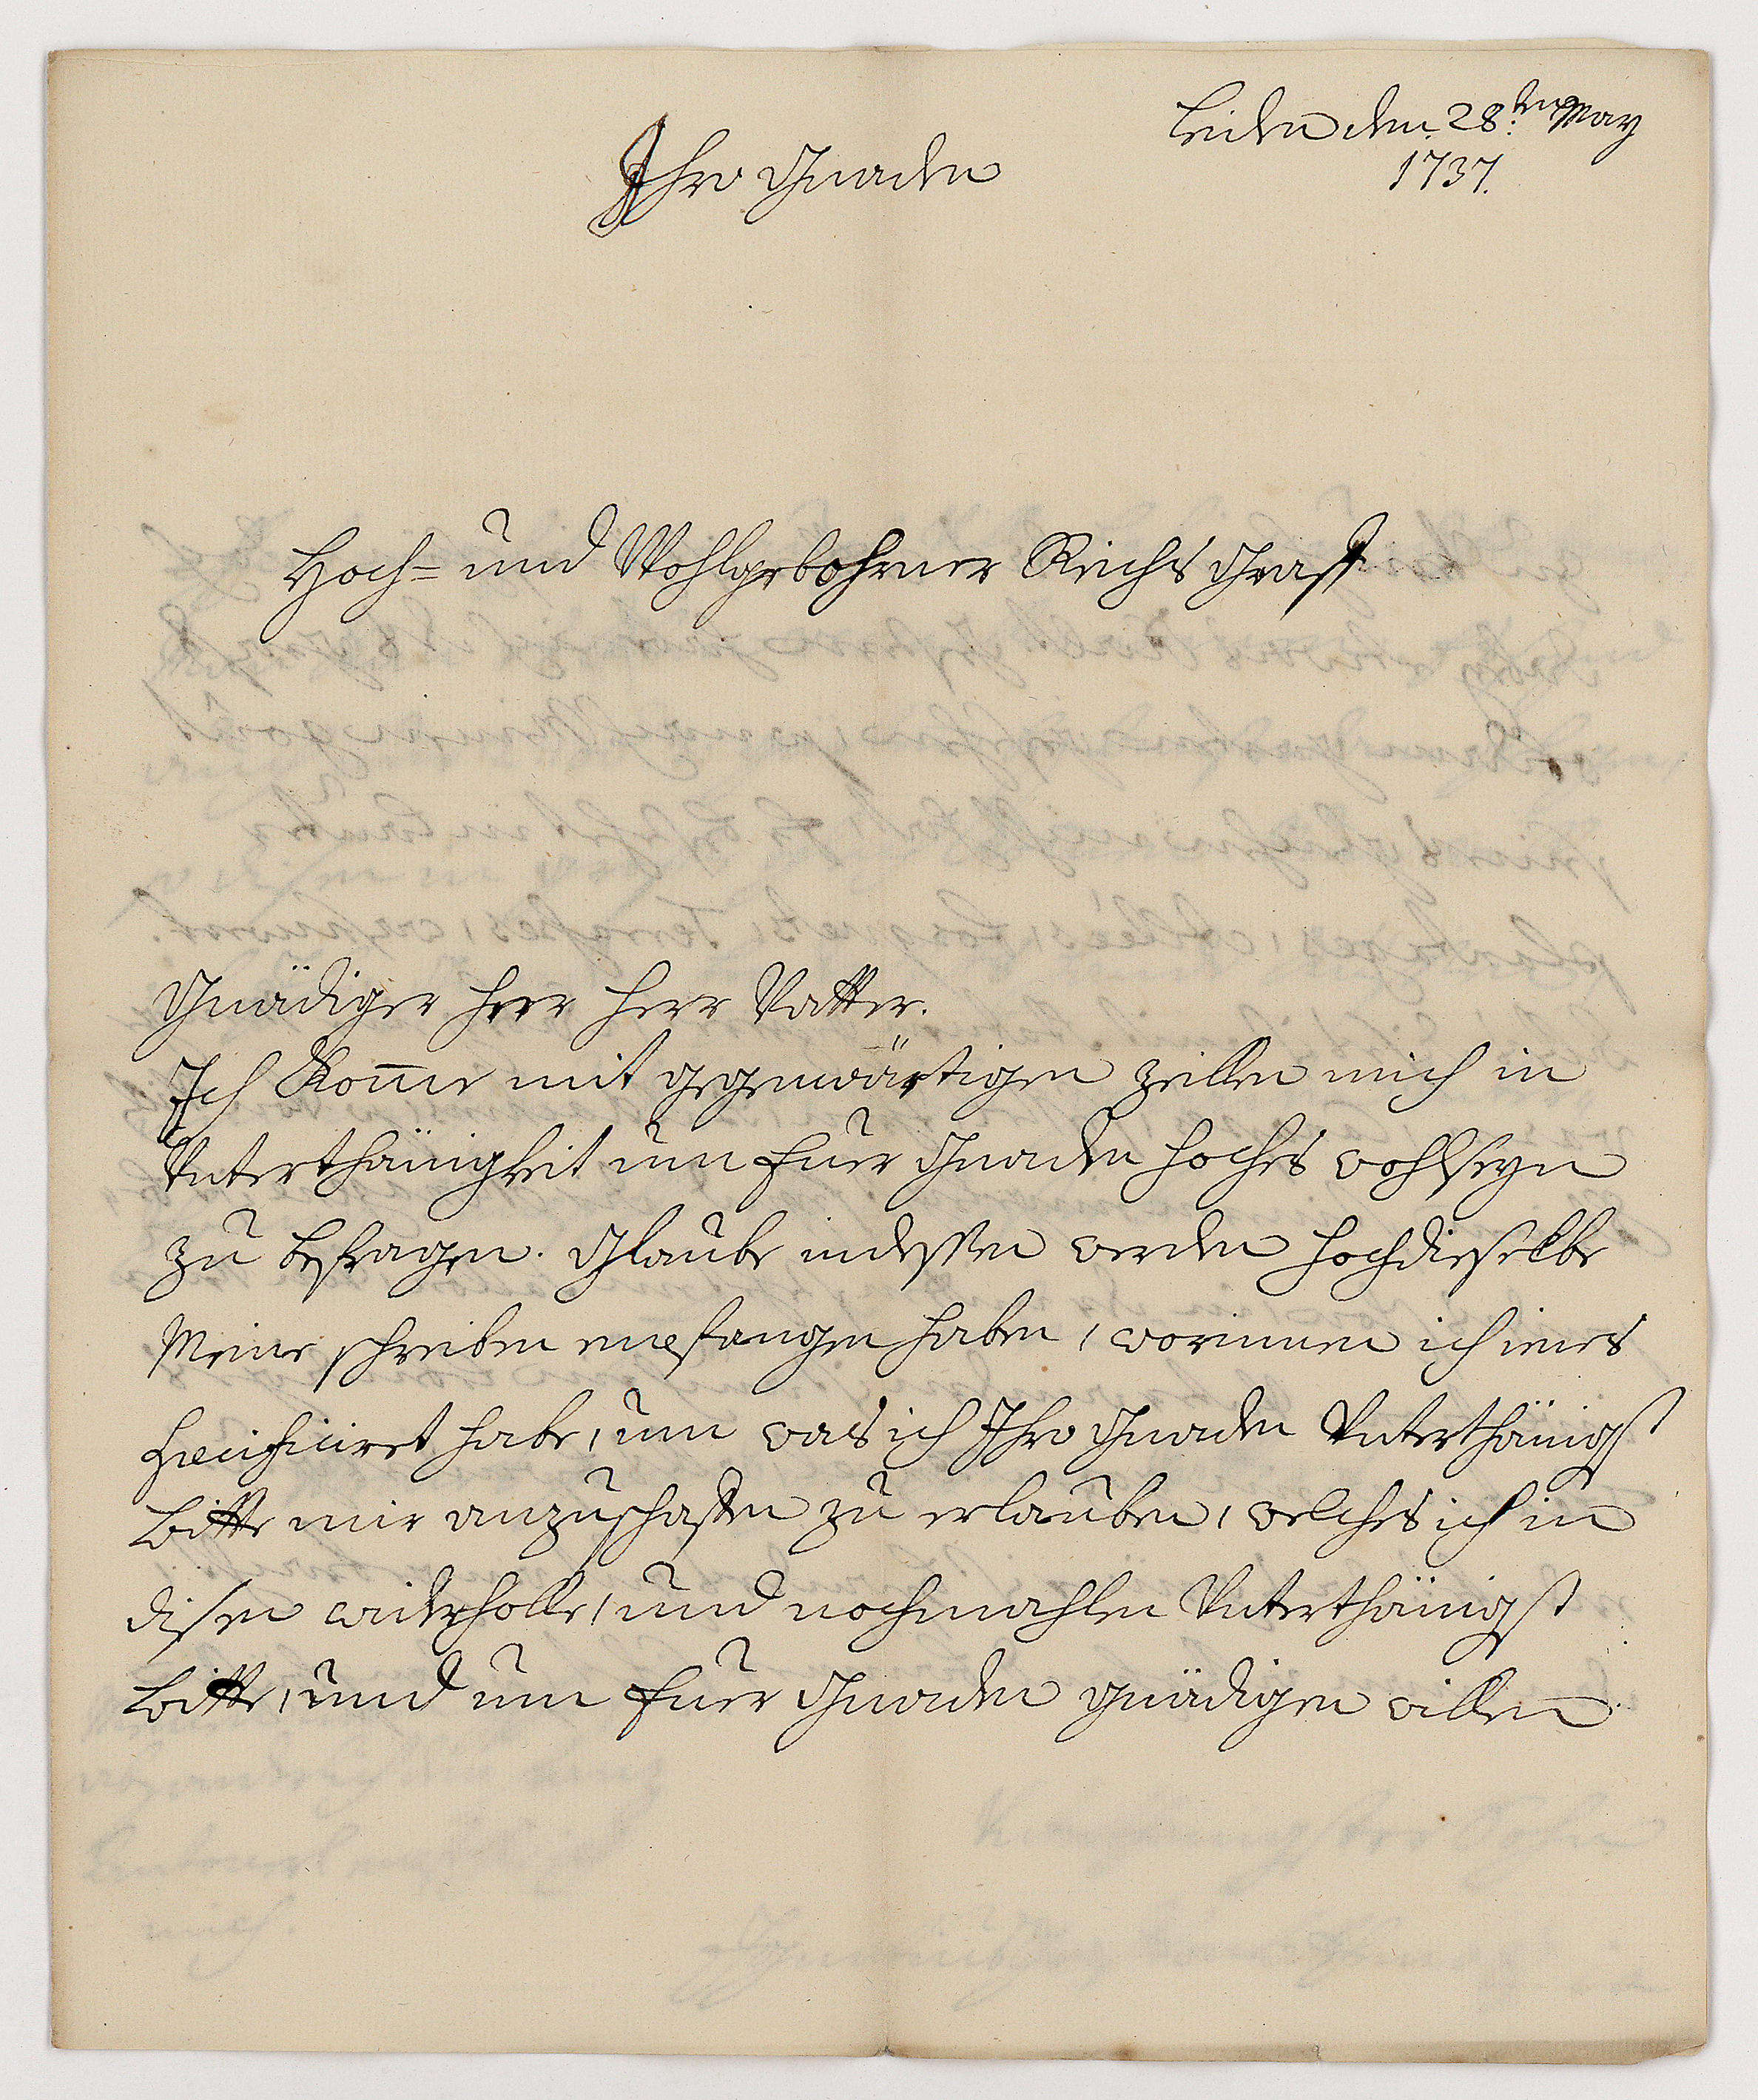 Leiden den 28:ten May
1737.
Ihro Gnaden
Hoch- und Wohlgebohrner Reichs Graff
Gnädiger Herr Herr Vatter.
Ich Kom̅e mit gegenwärtigen zeillen mich in
Unterthänigkeit um Euer Gnaden hoches wohlseyn
zu befragen. Glaube indessen werden hochdieselbe
Meine schreiben empfangen haben, worinnen ich eines
specificiret habe, um was ich Ihro Gnaden Unterthänigst
bitte mir anzuschaffen zu erlauben, welches ich in
disen widerholle, und nochmahlen Unterthänigst
bitte, und um Euer Gnaden gnädigen willen